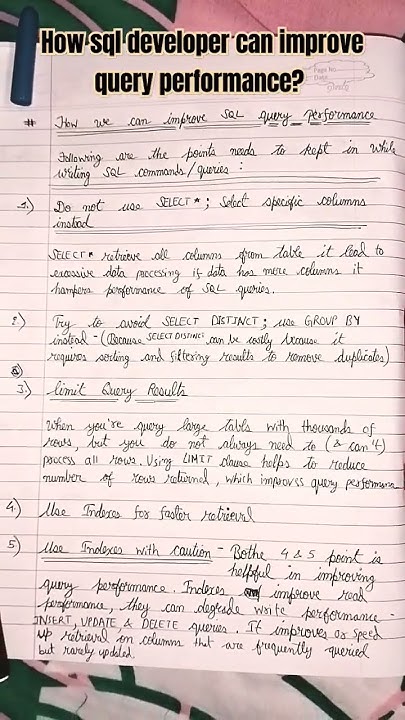 How sql developer can improve
query performance?
Page No.
Date
# How we can improve SQL query Performance
Following are the points needs to kept in while
writing SQL commands/queries :
1.) Do not use SELECT * ; Select specific columns
instead
SELECT * retrieve all columns from table it lead to
excessive data processing if data has more columns it
hampers performance of SQL queries.
2.) Try to avoid SELECT DISTINCT ; use GROUP BY
instead - (Because SELECT DISTINCT can be costly because it
requires sorting and filtering results to remove duplicates)
3.) limit Query Results
When you're query large tabls with thousands of
rows, but you do not always need to (& can't)
process all rows. Using LIMIT clause helps to reduce
number of rows returned, which improves query performance
4.) Use Indexes for faster retrieval
5.) Use Indexes with caution - Bothe 4 & 5 point is
helpful in improving
query performance. Indexes improve read
performance, they can degrade write performance -
INSERT, UPDATE & DELETE queries. It improves or speed
up retrieval on columns that are frequently queried
but rarely updated.